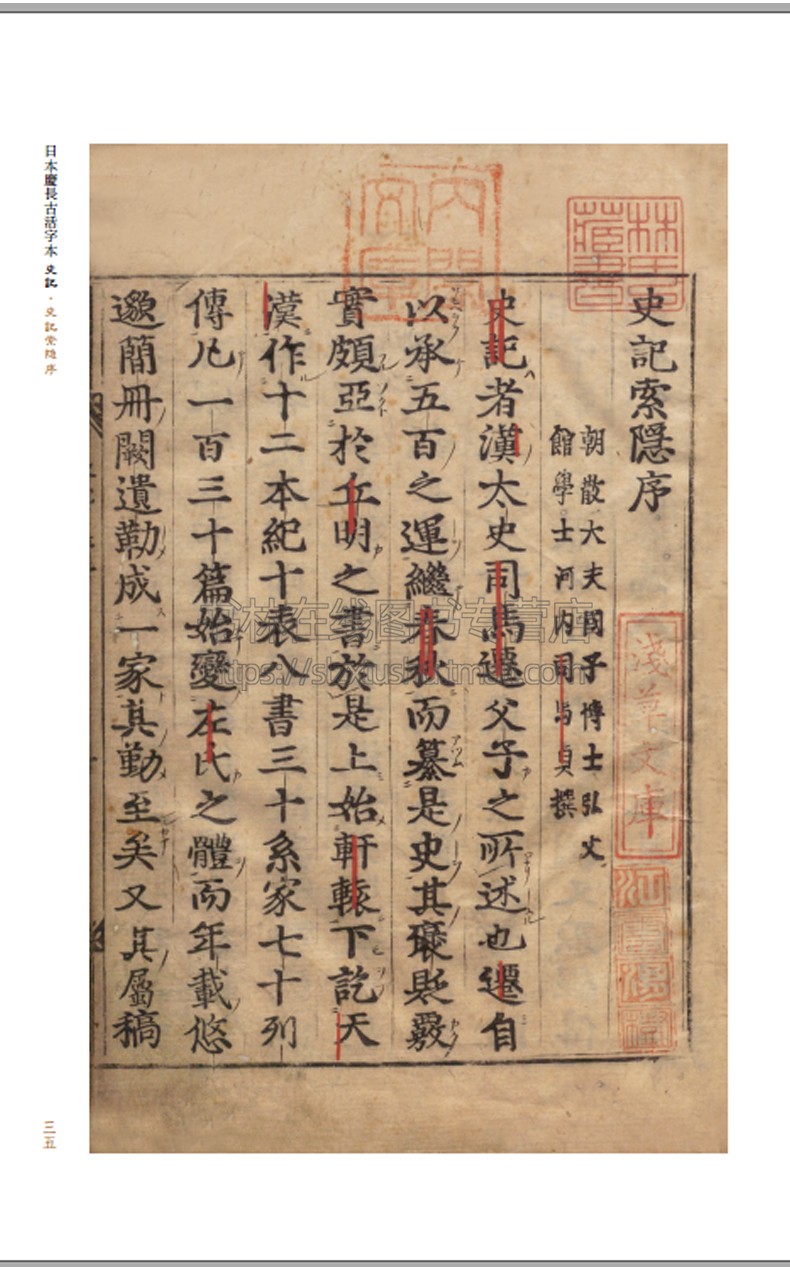 林氏藏書
内閣文庫
史記索隱序
淺草文庫
江雲渭樹
朝散大夫國子博士弘文
館學士河内司馬貞撰
史記者漢太史司馬遷父子之所述也遷自
以承五百之運繼春秋而纂是史其襃貶覈
實頗亞於丘明之書於是上始軒轅下訖天
漢作十二本紀十表八書三十系家七十列
傳凡一百三十篇始變左氏之體而年載悠
邈簡冊闕遺勒成一家其勤至矣又其屬稿
日本慶長古活字本 史記·史記索隱序
三五
林在线图书专营店